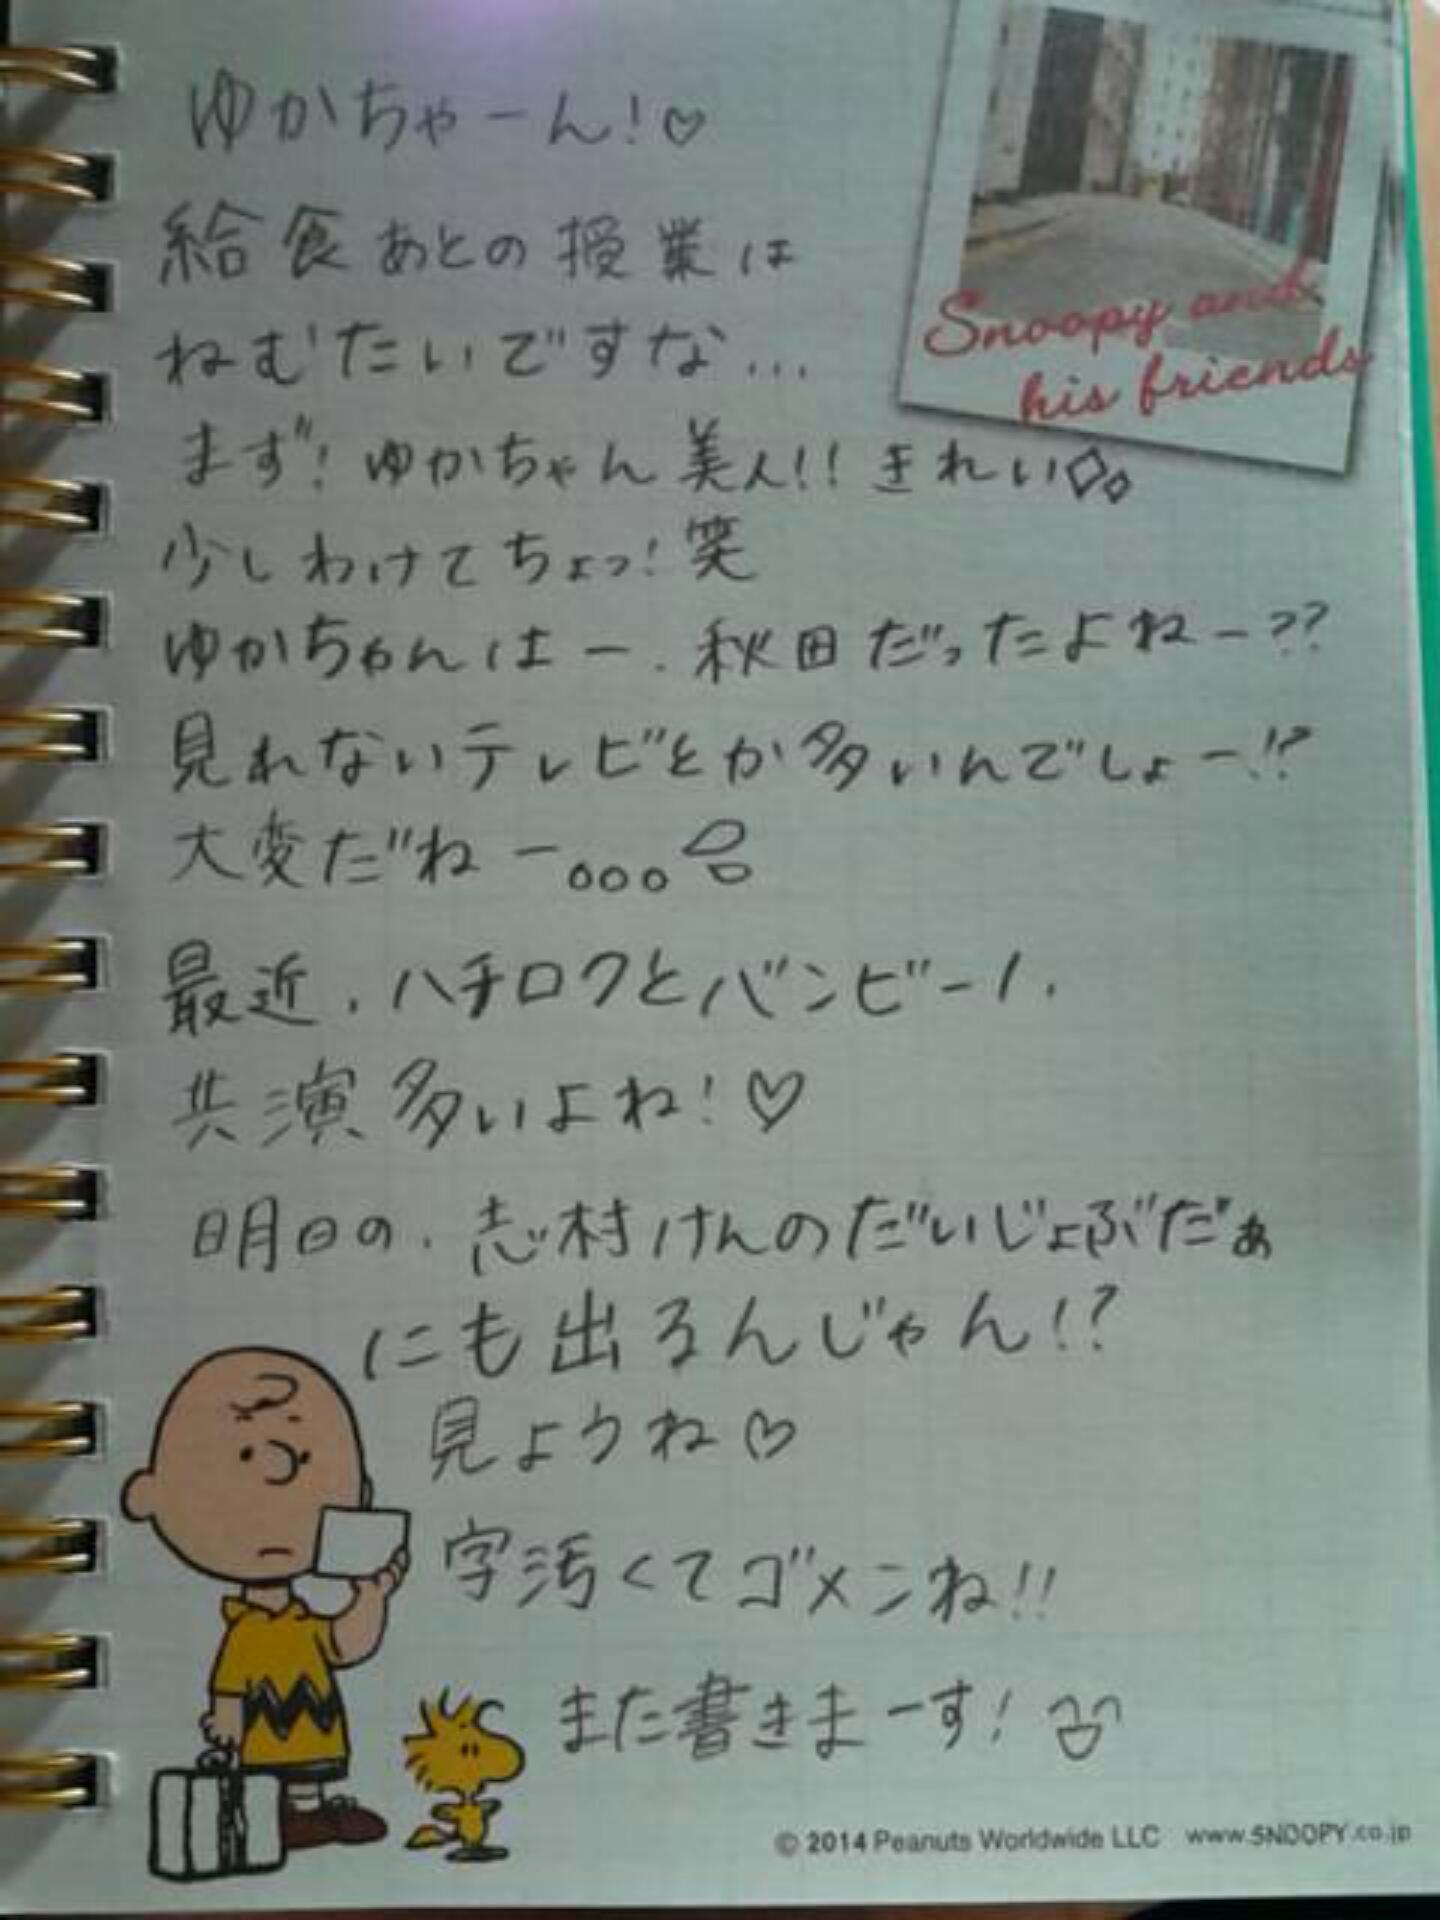 ゆかちゃーん!♡
Snoopy and
his friends
給食あとの授業は
ねむたいですな...
まず!ゆかちゃん美人!!きれい◇◇
少しわけてちょっ!笑
ゆかちゃんはー、秋田だったよねー??
見れないテレビとか多いんでしょー!?
大変だねー。。。
最近、ハチロクとバンビーノ、
共演多いよね!♡
明日の、志村けんのだいじょぶだぁ
にも出るんじゃん!?
見ようね♡
字汚くてゴメンね!!
また書きまーす!
© 2014 Peanuts Worldwide LLC www.SNOOPY.co.jp